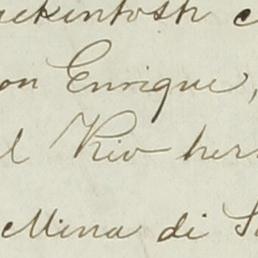 ackintosh
on Enrique,
l Rio her
Mina di S